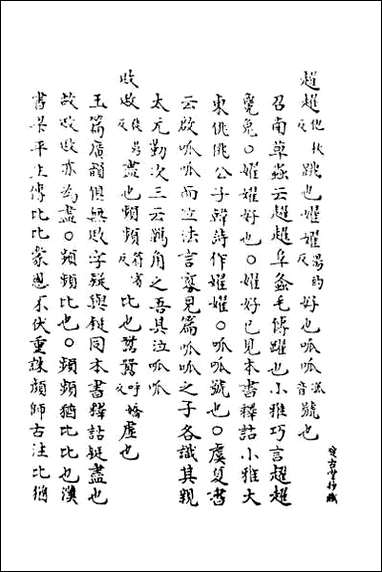 趯趯他狄反跳也嬥嬥湯的反好也呱呱音孤號也
召南草蟲云趯趯阜螽毛傳躍也小雅巧言趯趯
毚兔〇嬥嬥好也〇嬥好已見本書釋詁小雅大
東佻佻公子韓詩作嬥嬥〇呱呱號也〇虞夏書
云啟呱呱而泣法言寡見篇呱呱之子各識其親
太元勤次三云羈角之吾其泣呱呱
盡也頻頻符賓反比也呼橋反虛也
玉篇廣韻俱無字疑與鋌同本書釋詁鋌盡也
故亦為盡〇頻頻比也〇頻頻猶比比也漢
書哀平上傳比比蒙恩不伏重誅顏師古注比猶